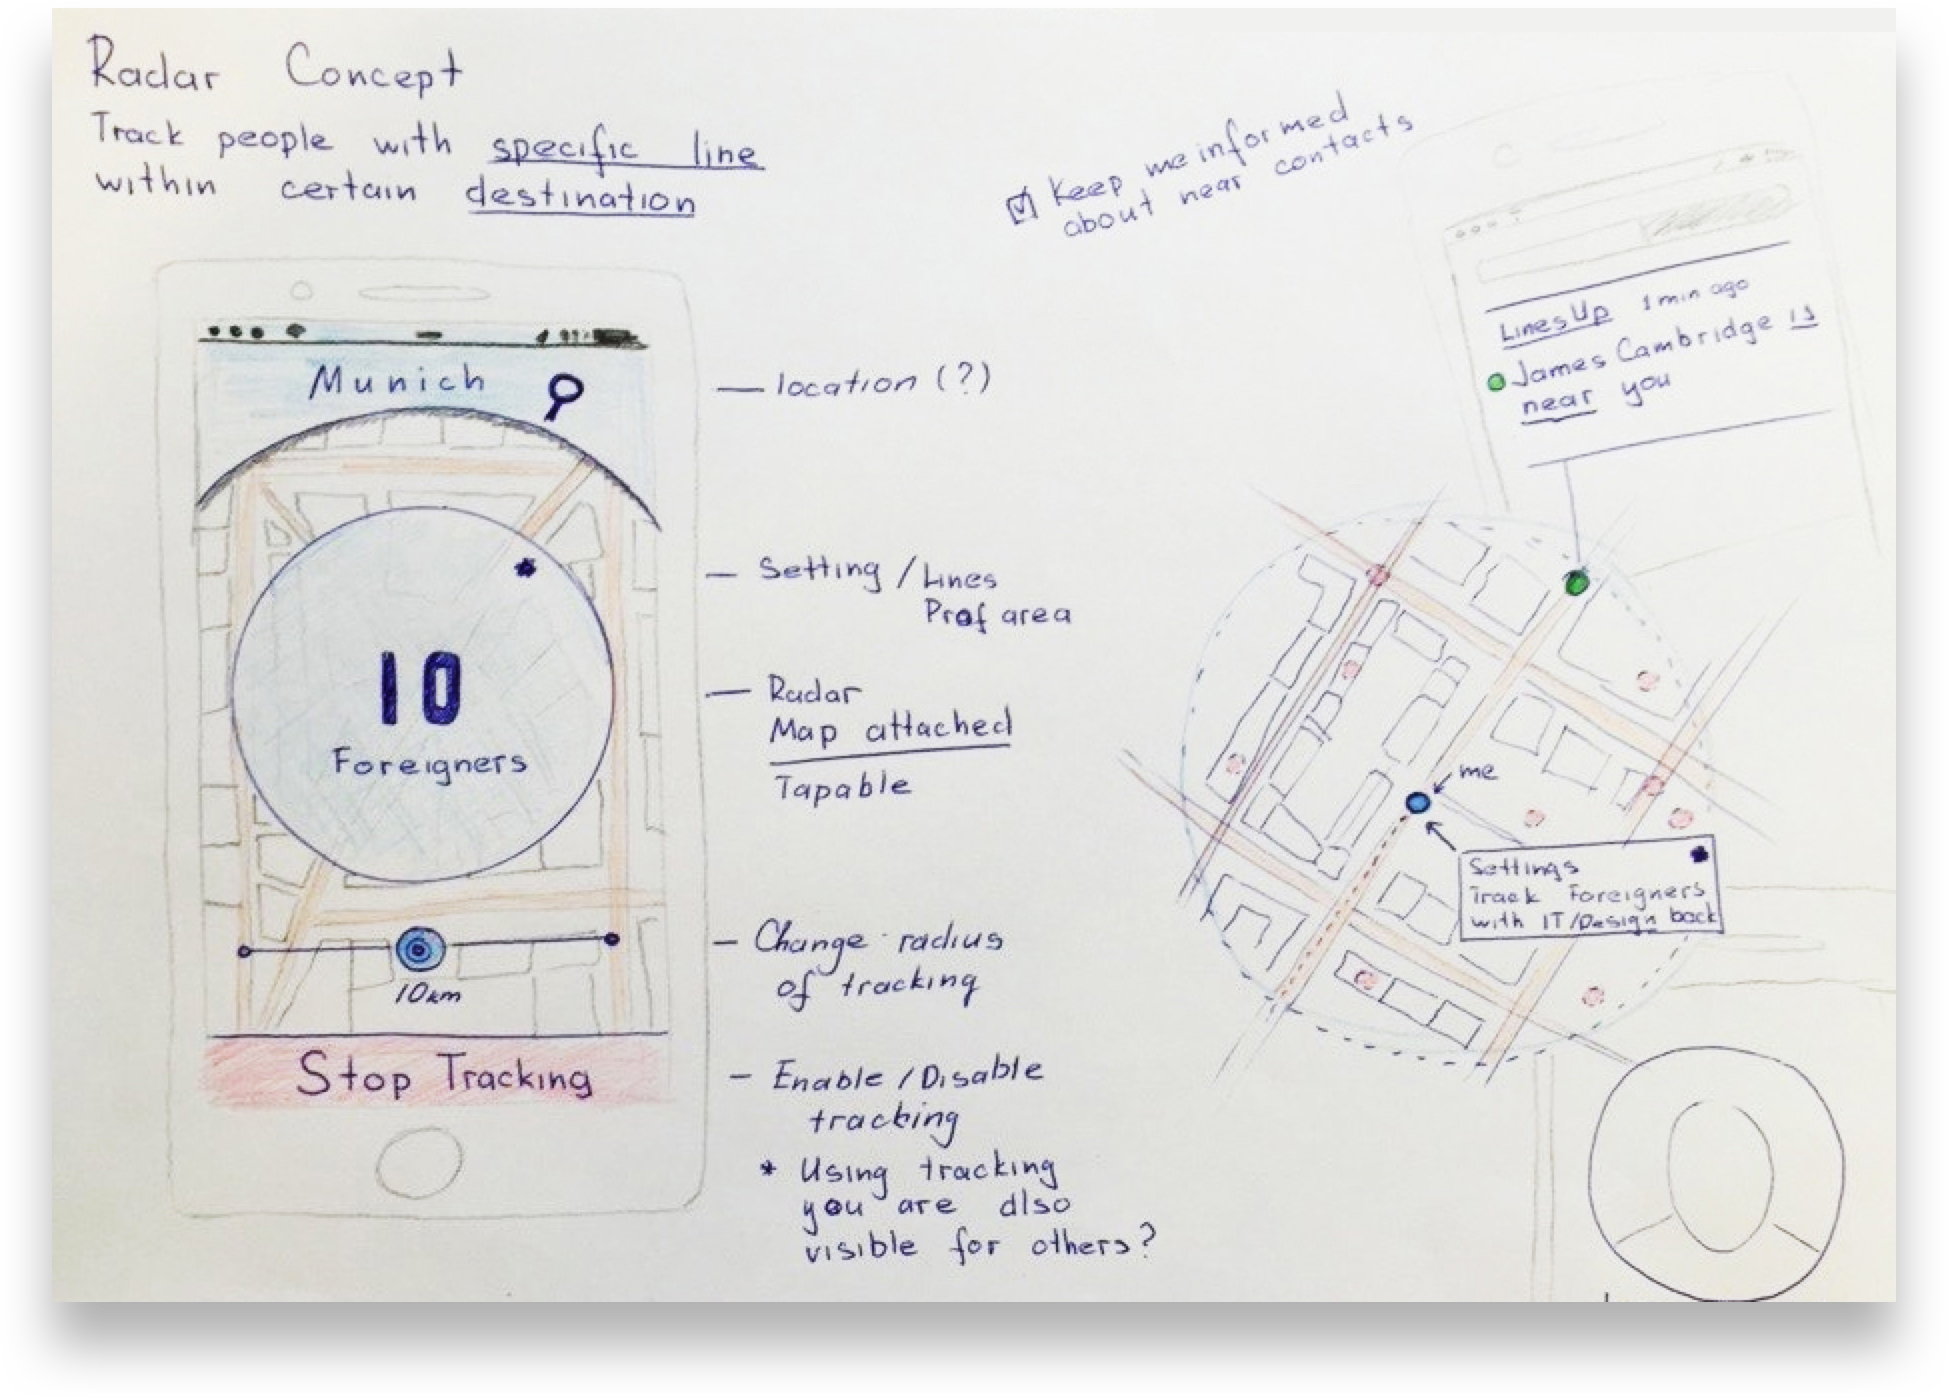 Radar Concept
Track people with specific line
within certain destination
Munich
10
Foreigners
10km
Stop Tracking
— location (?)
— Setting / Lines
Prof area
— Radar
Map attached
Tapable
— Change radius
of tracking
— Enable / Disable
tracking
* Using tracking
you are also
visible for others?
Keep me informed
about near contacts
LinesUp 1 min ago
James Cambridge is
near you
me
Settings
Track Foreigners
with IT/Design back